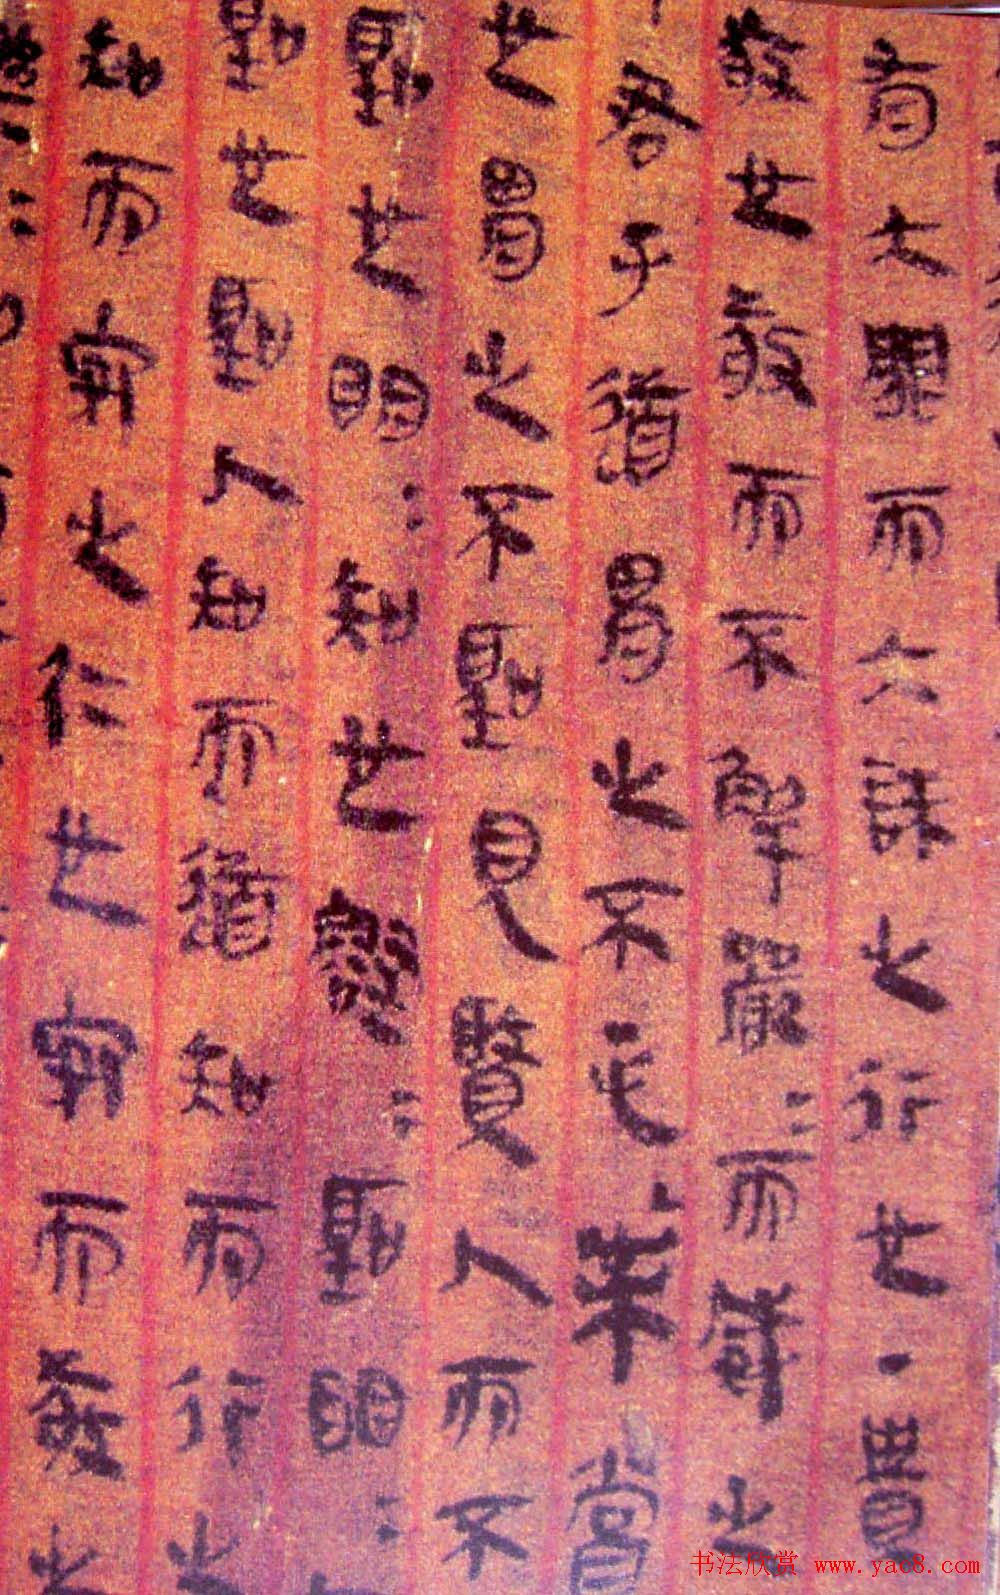 有大罪而大誅之行也·貴
敬也敬而不解嚴=而威之
君子道胃之不未嘗
也胃之不聖見賢人而不
聖也明=知也=聖明=
聖也聖人知而道知而行之
知而安之仁也安而敬之
书法欣赏 www.yac8.com